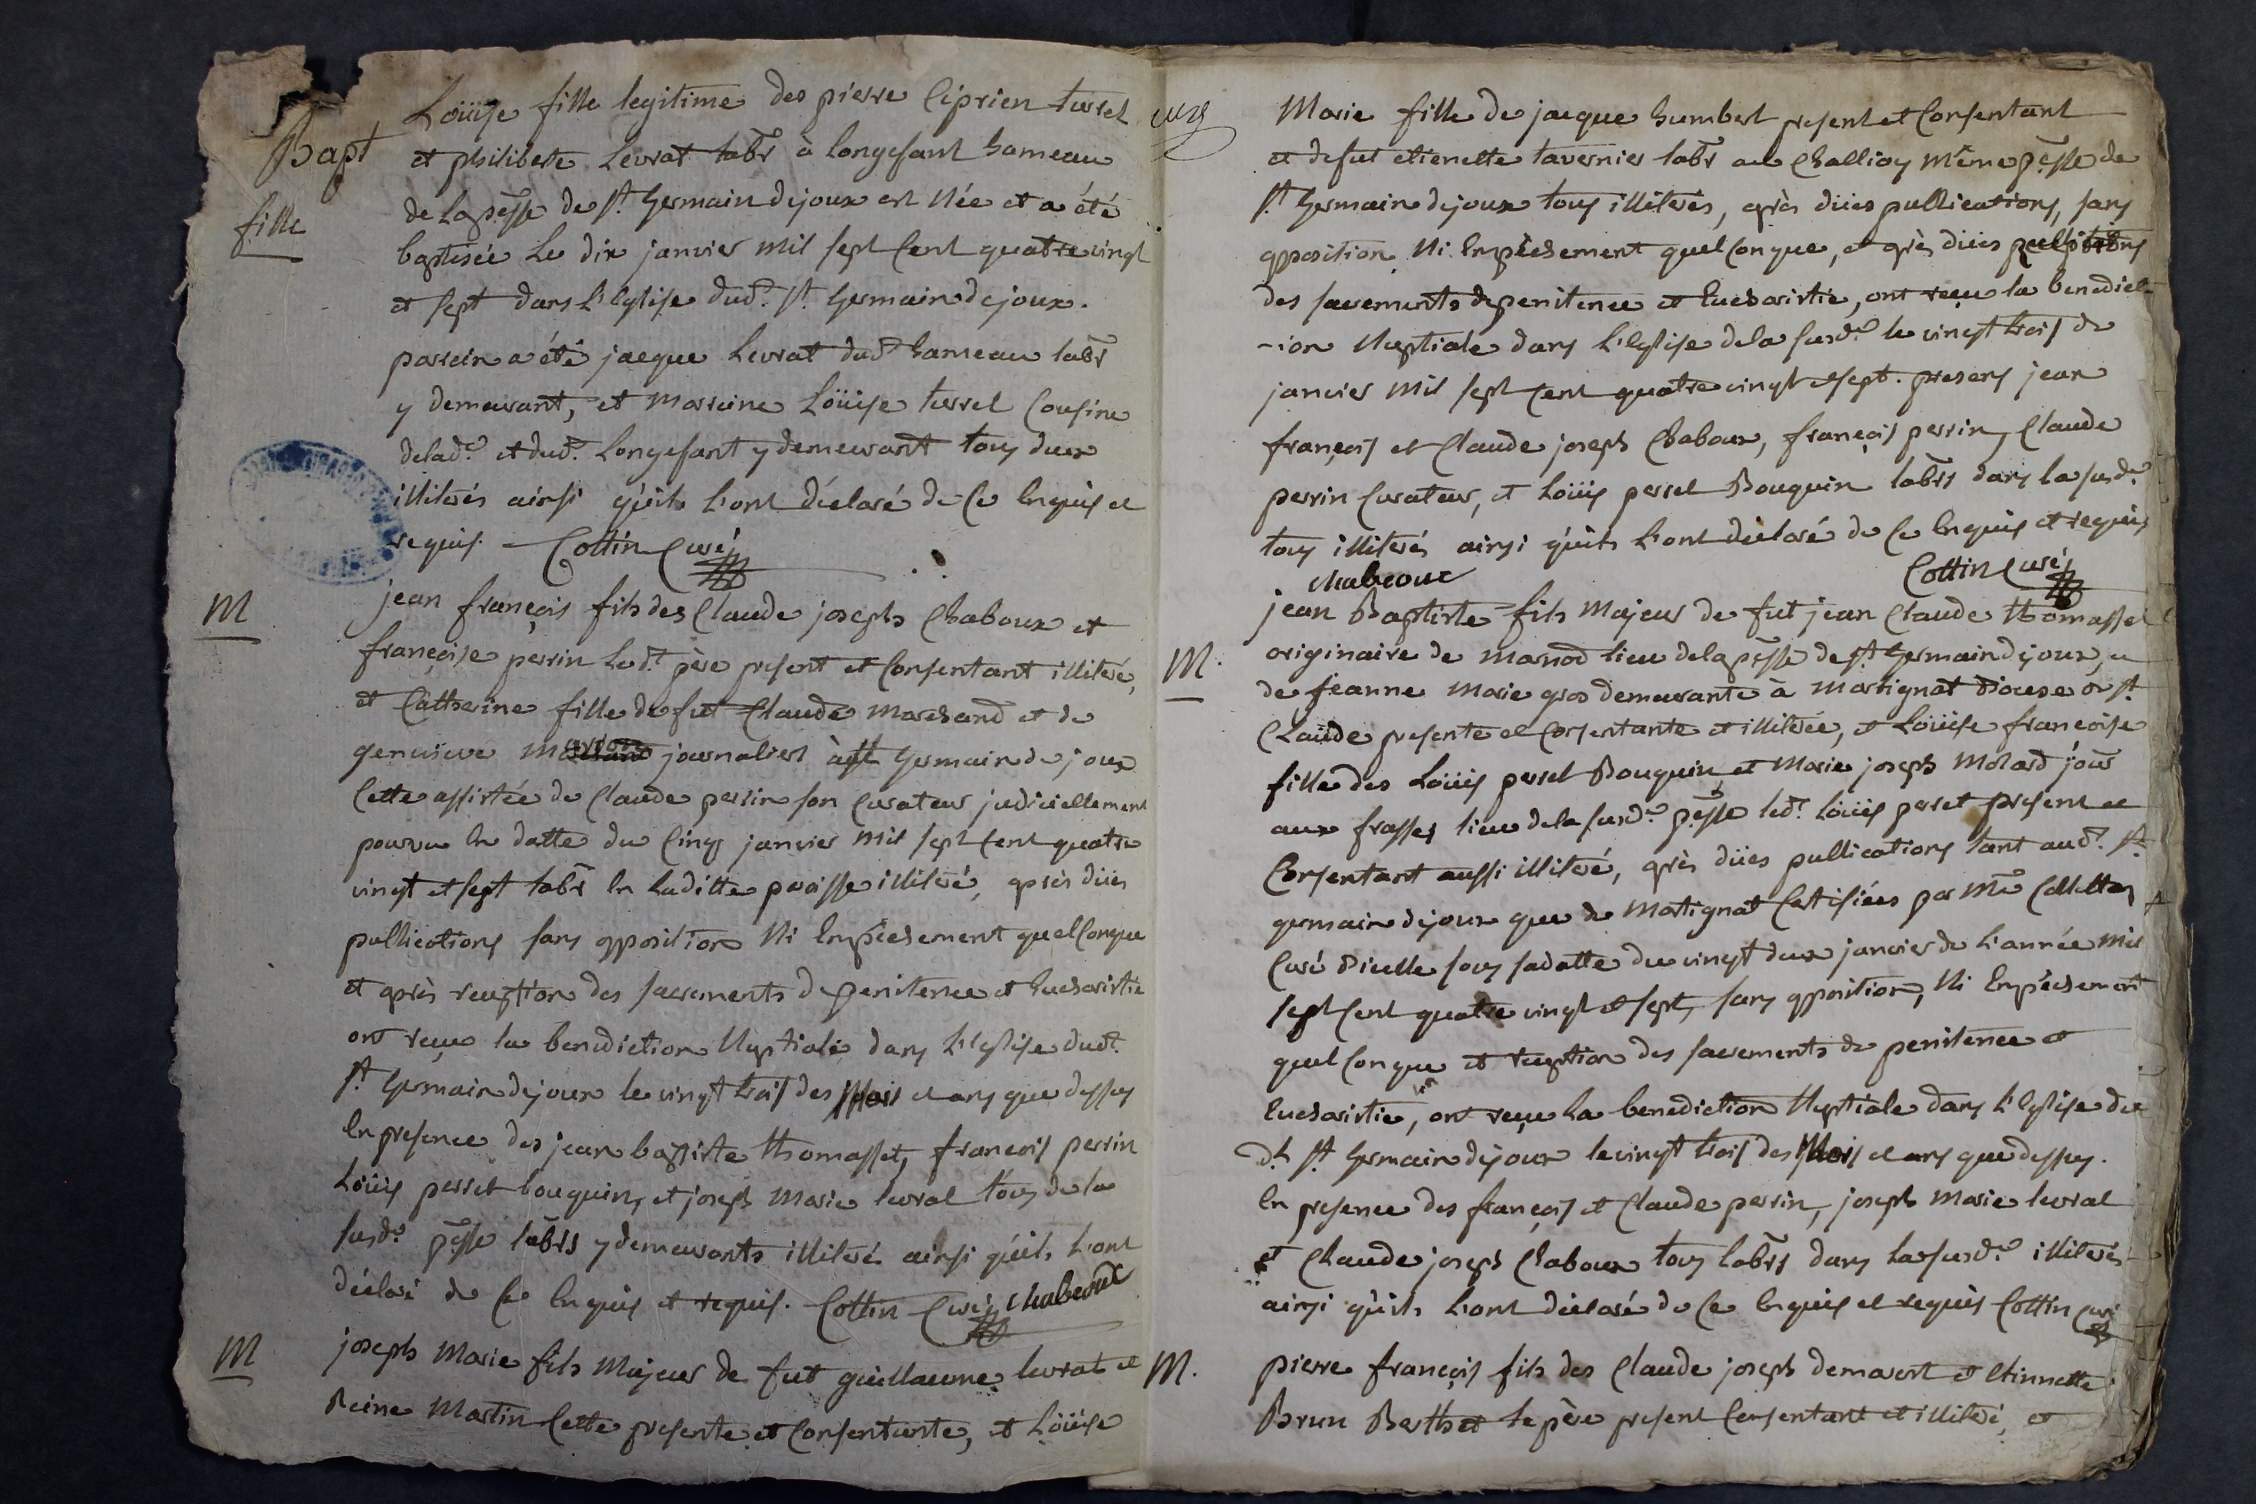 Loüise fille legitime des pierre Ciprien turrel
Bapt
et philiberte Levrat labr à Longefant hameau
fille
de La pesse de st. Germain dejoux est Née et a été
baptisée Le dix janvier mil sept Cent quatre vingt
et sept dans L'Eglise dud.t st Germain de joux.
parrein a été jacque Levrat dud.t hameau labr
y demeurant, et Marreine Loüise turrel Cousine
de lad.e et dud.t Longefant y demeurant tous deux
illiterés ainsi qu'ils L'ont déclaré de Ce Enquis et
requis. Cottin Curé
M
jean françois fils des Claude joseph Chaboux et
françoise perrin Led.t père present et Consentant illiteré,
et Catherine fille de fut Claude Marchand et de
genevieve journaliers à st Germain de joux
Cette assistée de Claude perrin son Curateur judiciellement
pourvu En datte du Cinq janvier mil sept Cent quatre
vingt et sept labr En Laditte paroisse illiteré, après düës
publications sans opposition Ni Empêchement quelConque
et après reception des sacrements de penitence et Euchâristie
ont reçu la benediction Nuptiale dans L'Eglise dud.t
st Germain dejoux le vingt trois des Mois et ans que dessus
En presence des jean baptiste thomasset, françois perrin
Loüis perret bouquin, et joseph Marie levrat tous de la
susd.e pesse labrs y demeurants illiterés ainsi qu'ils L'ont
déclaré de Ce Enquis et requis. Cottin Curé Chabeoux
M
joseph Marie fils Majeur de fut guillaume levrat et
Reine Martin Cette presente et Consentente, et Loüise
Marie fille de jacque humbert present et Consentant
et de fut etienette tavernier labr au Challioy même pesse de
st Germain dejoux tous illiterés, après düës publications, sans
opposition Ni Empêchement quelConque, et après düës
des sacrements de penitence et Euchâristie, ont reçu la benedict-
-ion Nuptiale dans L'Eglise de la susd.e le vingt trois de
janvier mil sept Cent quatre vingt et sept. presens jean
françois et Claude joseph Chaboux, françois perrin, Claude
perrin Curateur, et Loüis perret Bouquin labrs dans la susd.e
tous illiterés ainsi qu'ils L'ont déclaré de Ce Enquis et requis
Chabeoux Cottin Curé
M.
jean Baptiste fils Majeur de fut jean Claude thomasset
originaire de Marnod lieu de la pesse de st Germain dejoux, et
de jeanne Marie gros demeurante à Martignat Diocese de st
Claude presente et Consentante et illiterée, et Loüise françoise
fille des Loüis perret Bouquin et Marie joseph Molard jour
aux frasses lieu de la susd.e pesse led.t Loüis perret present et
Consentant aussi illiteré, après düës publications tant aud.t st
germain dejoux que de Martignat Certifiées par Mre
Curé d'icelle sous sa datte du vingt deux janvier de L'année mil
sept Cent quatre vingt et sept, sans opposition, Ni Empêchement
quelConque et reception des sacrements de penitence et
Euchâristie, ont reçu La benediction Nuptiale dans L'Eglise du
d.t st Germain dejoux le vingt trois des Mois et ans que dessus.
En presence des françois et Claude perrin, joseph Marie levrat
et Claude joseph Chaboux tous labrs dans La susd.e illiterés
ainsi qu'ils L'ont déclaré de Ce Enquis et requis Cottin Curé
M.
pierre françois fils des Claude joseph demarert et Etiennette
Brun Berthet le père present Consentant et illiteré, et